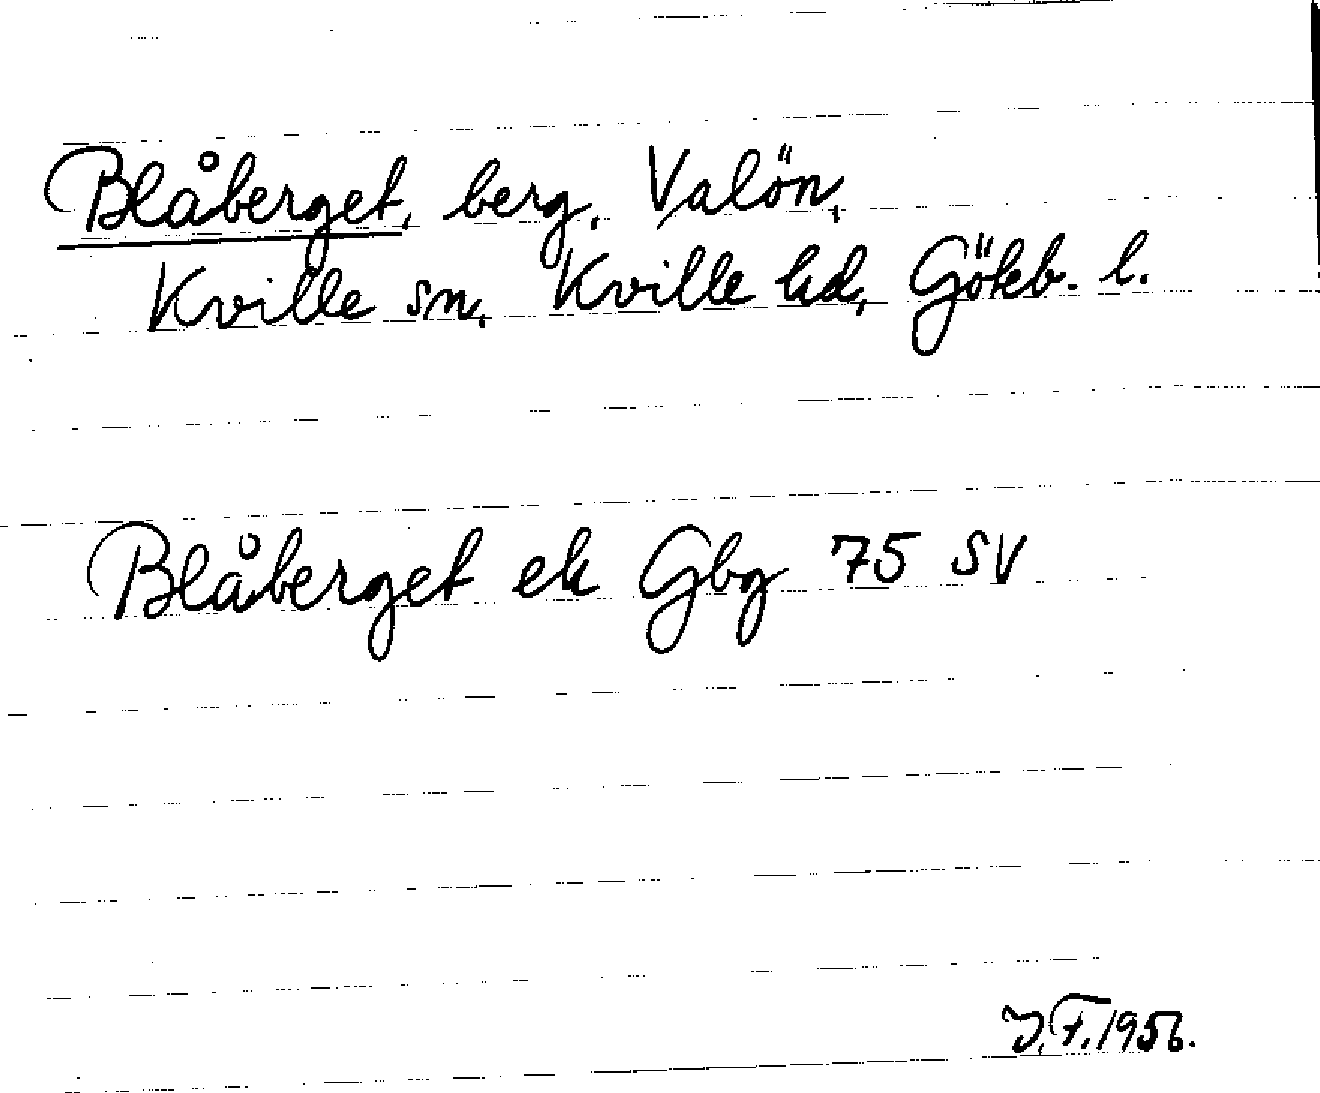 Blåberget, berg, Valön,
Kville sn, Kville hd, Göteb. l.
Blåberget ek Gbg 75 SV
J.F. 1956.